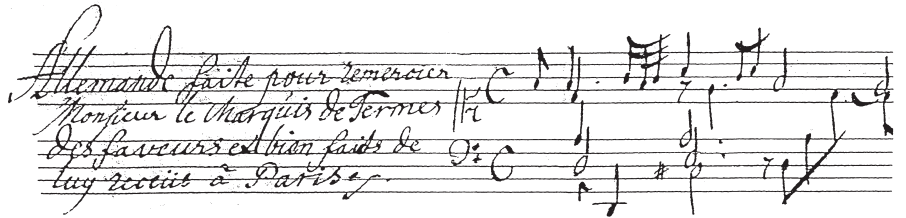 Allemande faite pour remercier
Monsieur le Marquis de Termes
des faveurs et bien faits de
luy receüs à Paris